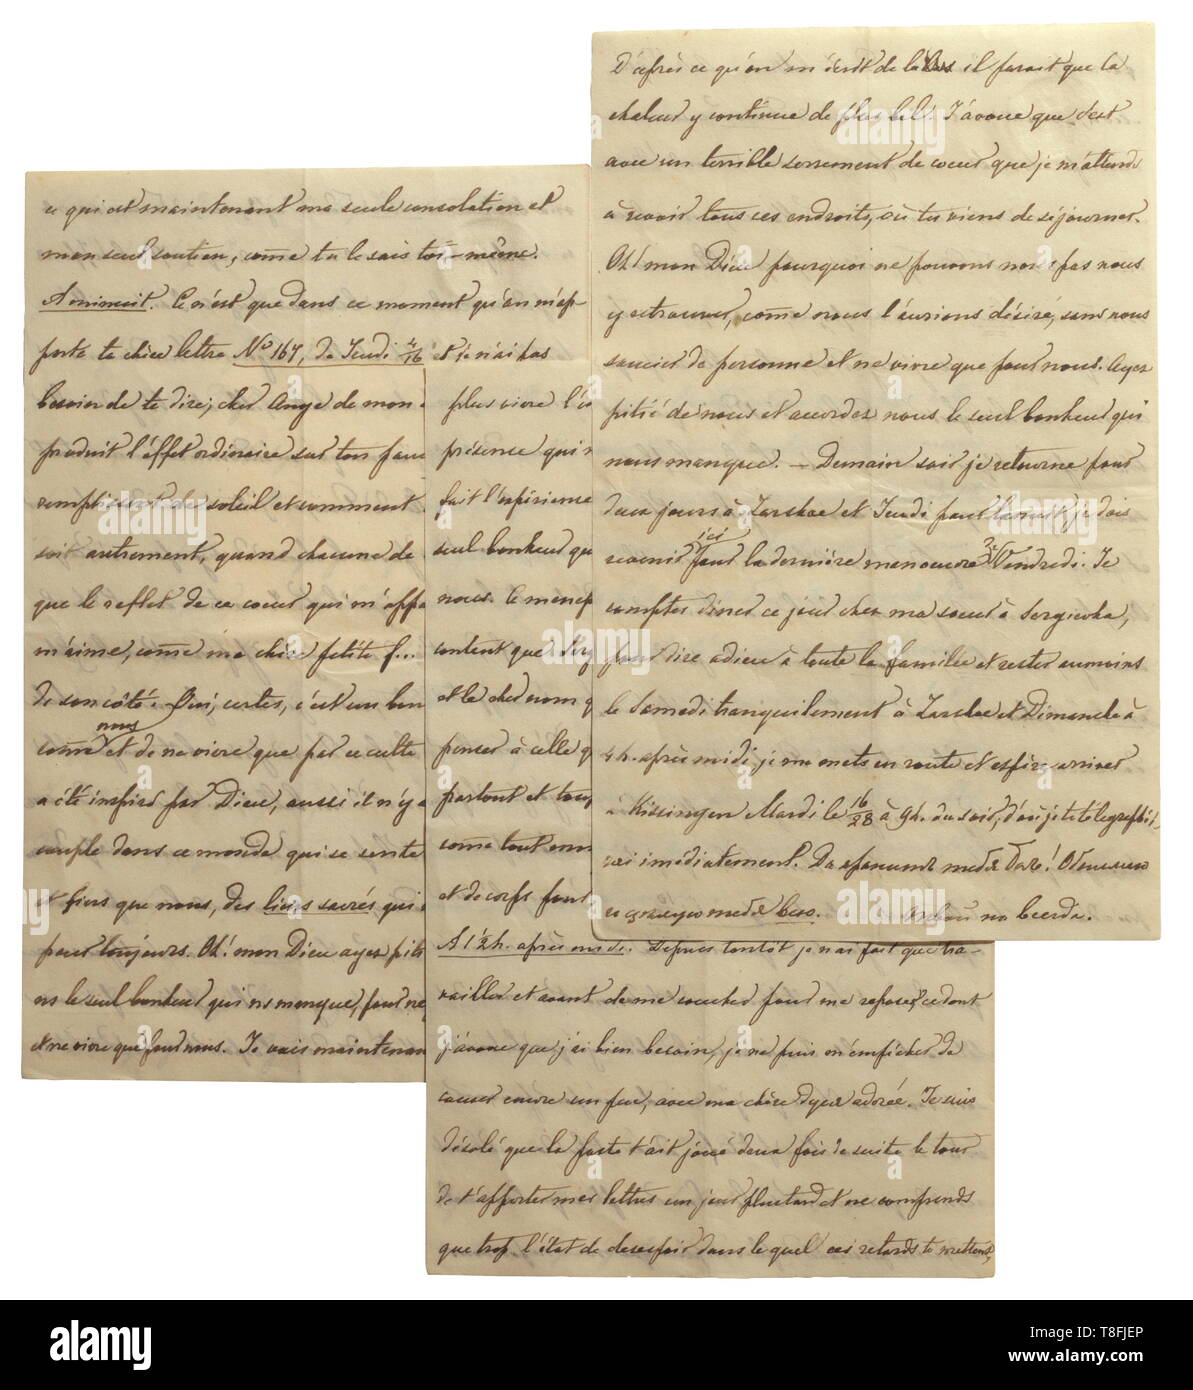 ce qui est maintenant ma seule consolation et
mon seul soutien, come tu le sais toi-même.
A minuit. Ce n'est que dans ce moment qu'on m'ap-
porte ta chère lettre No 167, de Jeudi 4/16 et je n'ai pas
besoin de te dire, cher Ange de mon
produit l'effet ordinaire sur ton
remplissant de soleil et comment
soit autrement, quand chacune de
que le reflet de ce coeur qui m'app
m'aime, come ma chère petite f...
de son côté. Oui, certes, c'est un bon
nous
come et de ne vivre que par ce culte
a été inspiré par Dieu, aussi il n'y a
couple dans ce monde qui se sente
et fiers que nous, des liens sacrés qui
pour toujours. Oh! mon Dieu ayez piti
ns le seul bonheur qui ns manque, pour
et ne vivre que pour nous. Je vais maintenan
plus vive l'
présense qui
fait l'expérience
seul bonheur qu
nous. Ce
content que
et le cher nom q
penser à celle q
partout et touj
come tout
et de corps pour
A 1½h. après midi. Depuis tantôt je n'ai fait que tra-
vailler et avant de me coucher pour me reposer, ce dont
j'avoue que j'ai bien besoin, je ne puis m'empêcher de
causer encore un peu, avec ma chère adorée. Je suis
désolé que la poste t'ait joué deux fois de suite le tour
de t'apporter mes lettres un jour plus tard et ne comprends
que trop l'état de desespoir dans lequel ces retards te mettent,
D'après ce qu'on m'écrit de il parait que la
chaleur y continue de plus bel. J'avoue que c'est
avec un terrible serrement de coeur que je m'attends
à revoir tous ces endroits, où tu viens de séjourner.
Oh! mon Dieu pourquoi ne pouvons nous pas nous
y retrouver, come nous l'aurions désiré, sans nous
soucier de personne et ne vivre que pour nous. Ayez
pitié de nous et accordez nous le seul bonheur qui
nous manque. — Demain soir je retourne pour
deux jours à Zarskoe et Jeudi je dois
ici
revenir pour la dernière manoeuvre Vendredi. Je
comptes diner ce jour chez ma soeur à Sergiewka,
pour dire adieu à toute la famille et rester au moins
le Samedi tranquilement à Zarskoe et Dimanche à
4 h. après midi je me mets en route et espère arriver
à Kissingen Mardi le 16/28 à 9h. du soir, d'où je te télegraphie-
rai imédiatement.